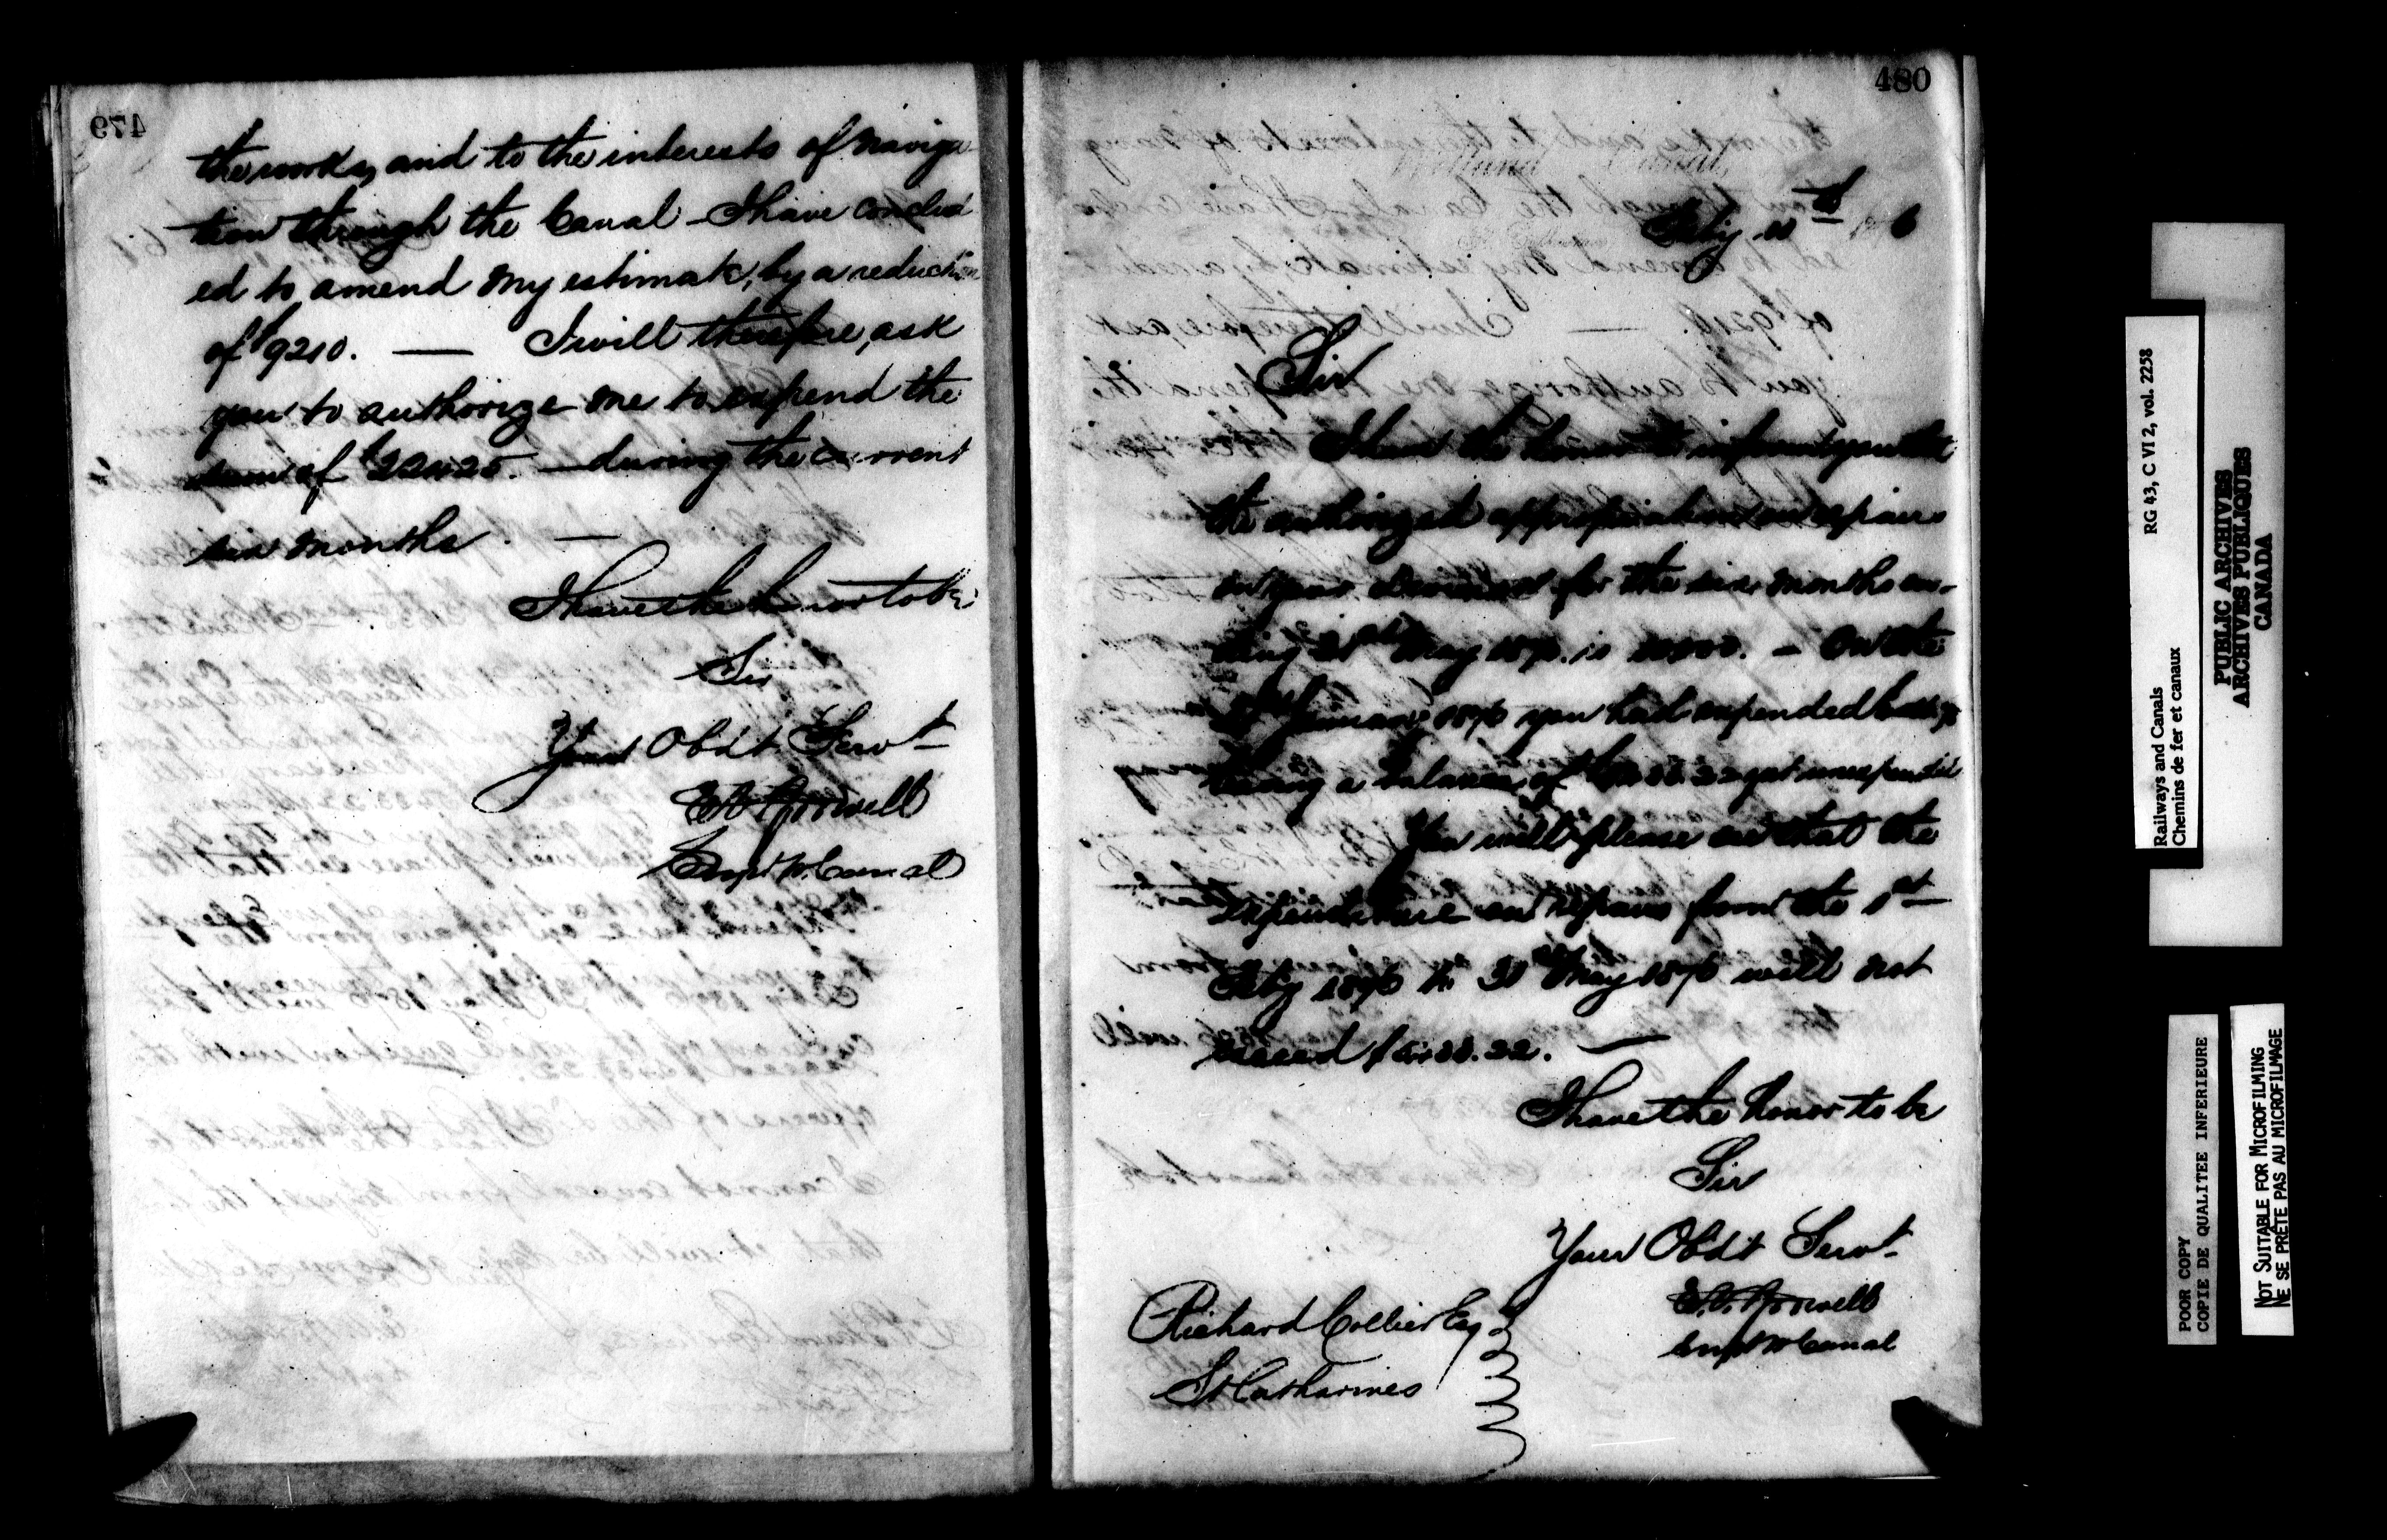 479
the works, and to the interests of naviga
tion through the Canal - I have conclud
ed to amend my estimate, by a reduction
of $9210. — I will therefore, ask
you to authorize me to expend the
sum of — during the current
six months. —
I have the honor to be
Sir
Your Obdt Servt
Supt W. Canal
480
Welland Canal,
Feby 6
Sir
I have the honor to inform you that
the authorized appropriation on repairs
on your Division for the six months en-
ding 31st May 1876 is — On the
January 1876 you had expended
leaving a balance of yet unexpended
You will please see that the
expenditure on repairs from the 1st
Feby 1876 to 31st May 1876 will not
exceed —
I have the honor to be
Sir
Your Obdt Servt
Supt W Canal
Richard Collier Esq
St Catharines
Railways and Canals RG 43, C VI 2, vol. 2258
Chemins de fer et canaux
PUBLIC ARCHIVES
ARCHIVES PUBLIQUES
CANADA
POOR COPY
COPIE DE QUALITEE INFERIEURE
NOT SUITABLE FOR MICROFILMING
NE SE PRÊTE PAS AU MICROFILMAGE